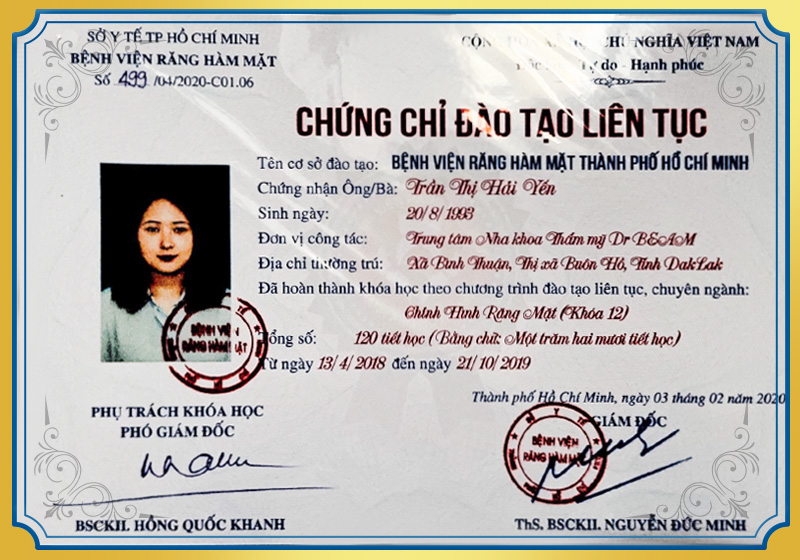 SỞ Y TẾ TP HỒ CHÍ MINH
BỆNH VIỆN RĂNG HÀM MẶT
Số 499 /04/2020-C01.06
CHỦ NGHĨA VIỆT NAM
Tự do - Hạnh phúc
CHỨNG CHỈ ĐÀO TẠO LIÊN TỤC
Tên cơ sở đào tạo: BỆNH VIỆN RĂNG HÀM MẶT THÀNH PHỐ HỒ CHÍ MINH
Chứng nhận Ông/Bà: Trần Thị Hải Yến
Sinh ngày: 20/8/1993
Đơn vị công tác: Trung tâm Nha khoa Thẩm mỹ Dr BEAM
Địa chỉ thường trú: Xã Bình Thuận, Thị xã Buôn Hồ, Tỉnh DakLak
Đã hoàn thành khóa học theo chương trình đào tạo liên tục, chuyên ngành:
Chỉnh Hình Răng Mặt (Khóa 12)
Tổng số: 120 tiết học (Bằng chữ: Một trăm hai mươi tiết học)
Từ ngày 13/4/2018 đến ngày 21/10/2019
BỆNH VIỆN
RĂNG HÀM MẶT
Thành phố Hồ Chí Minh, ngày 03 tháng 02 năm 2020
PHỤ TRÁCH KHÓA HỌC
PHÓ GIÁM ĐỐC
GIÁM ĐỐC
Y TẾ
BỆNH VIỆN
RĂNG HÀM MẶT
BSCKII. HỒNG QUỐC KHANH
ThS. BSCKII. NGUYỄN ĐỨC MINH